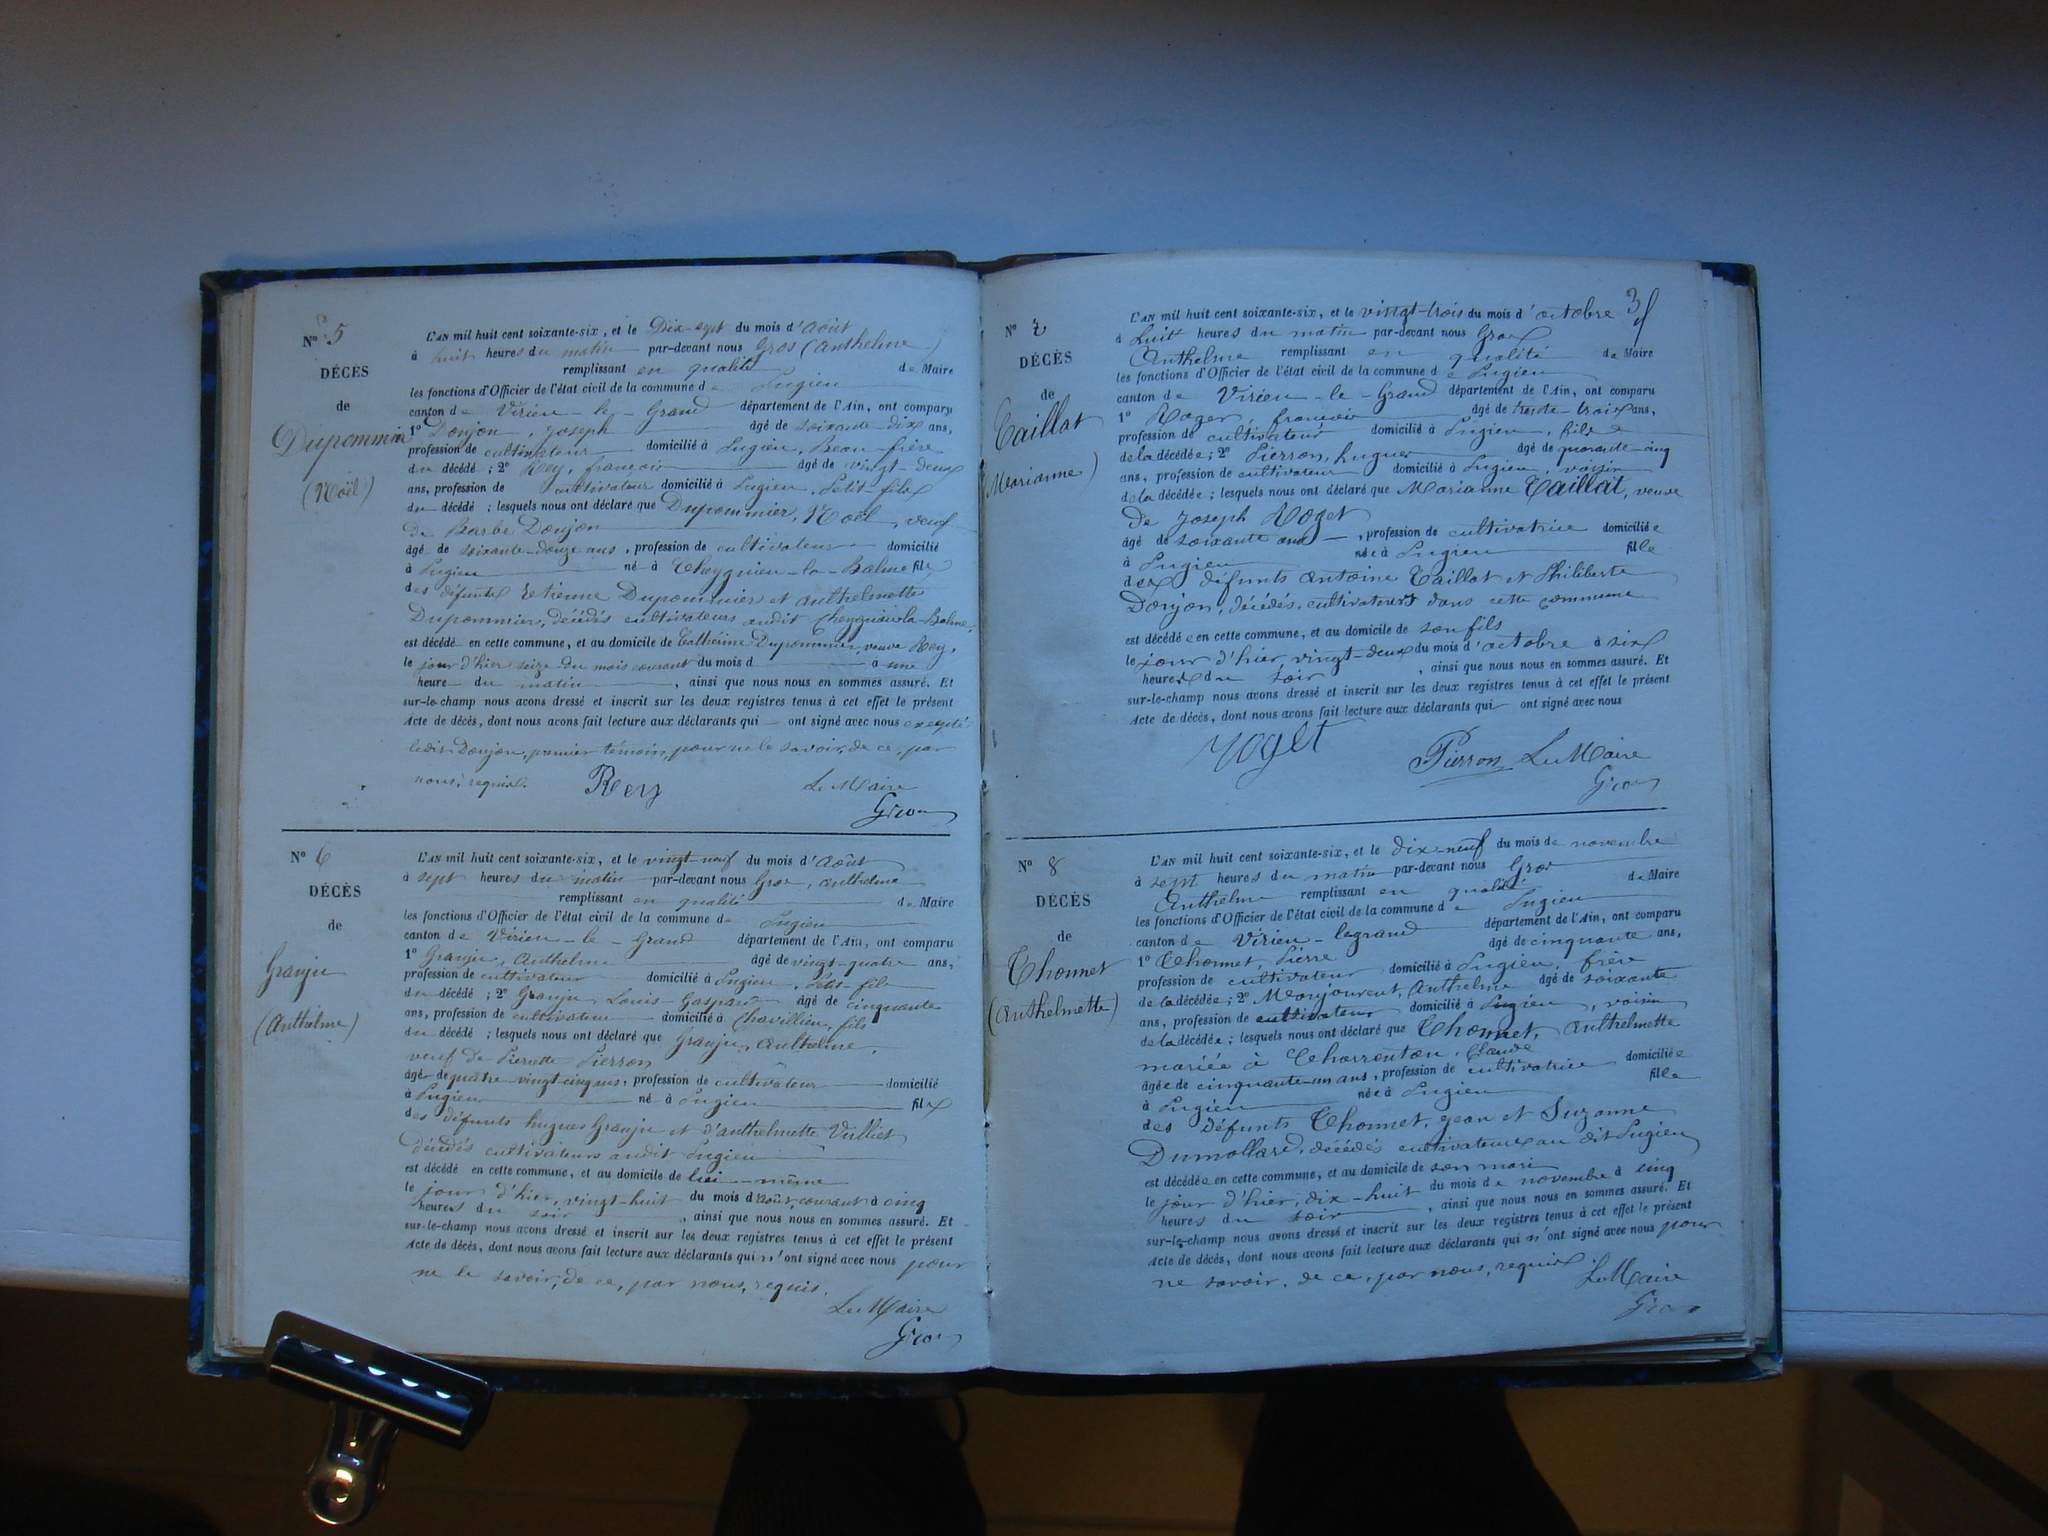 N° 5
DÉCÈS
de
Dupommier
(Noël)
L'AN mil huit cent soixante-six, et le Dix-sept du mois d'Août
à huit heures du matin par-devant nous Gros (Anthelme)
remplissant en qualité de Maire
les fonctions d'Officier de l'état civil de la commune de Pugieu
canton de Virieu-le-Grand département de l'Ain, ont comparu
1° Doujon, joseph âgé de soixante-dix ans,
profession de cultivateur domicilié à Pugieu, Beau-frère
du décédé ; 2° Rey, françois âgé de vingt-deux
ans, profession de cultivateur domicilié à Pugieu, Petit-fils
du décédé ; lesquels nous ont déclaré que Dupommier, Noël, veuf
de Barbe Doujon
âgé de soixante-douze ans, profession de cultivateur domicilié
à Pugieu né à Cheygnieu-la-Balme fils
des défunts Etienne Dupommier et Anthelmette
Dupommier, décédés cultivateurs audit Cheygnieu-la-Balme,
est décédé en cette commune, et au domicile de Cathérine Dupommier, veuve Rey,
le jour d'hier seize du mois courant du mois d à une
heure du matin, ainsi que nous nous en sommes assuré. Et
sur-le-champ nous avons dressé et inscrit sur les deux registres tenus à cet effet le présent
Acte de décès, dont nous avons fait lecture aux déclarants qui ont signé avec nous excepté
ledit Doujon, premier témoin, pour ne le savoir, de ce, par
nous, requis. Rey Le Maire
Gros
N° 6
DÉCÈS
de
Granju
(Anthelme)
L'AN mil huit cent soixante-six, et le vingt-neuf du mois d'Août
à sept heures du matin par-devant nous Gros, Anthelme
remplissant en qualité de Maire
les fonctions d'Officier de l'état civil de la commune de Pugieu
canton de Virieu-le-Grand département de l'Ain, ont comparu
1° Granju, Anthelme âgé de vingt-quatre ans,
profession de cultivateur domicilié à Pugieu, Petit-fils
du décédé ; 2° Granju, Louis-Gaspard âgé de cinquante
ans, profession de cultivateur domicilié à Chavillieu, fils
du décédé ; lesquels nous ont déclaré que Granju, Anthelme,
veuf de Pierrette Pierron
âgé de quatre-vingt-cinq ans, profession de cultivateur domicilié
à Pugieu né à Pugieu fils
des défunts hugues Granju et d'anthelmette Vulliet
décédés cultivateurs audit Pugieu
est décédé en cette commune, et au domicile de lui-même
le jour d'hier, vingt-huit du mois d'août, courant à cinq
heures du soir, ainsi que nous nous en sommes assuré. Et
sur-le-champ nous avons dressé et inscrit sur les deux registres tenus à cet effet le présent
Acte de décès, dont nous avons fait lecture aux déclarants qui n'ont signé avec nous pour
ne le savoir, de ce, par nous, requis.
Le Maire
Gros
3
N° 7
DÉCÈS
de
Taillat
(Marianne)
L'AN mil huit cent soixante-six, et le vingt-trois du mois d'octobre
à huit heures du matin par-devant nous Gros
Anthelme remplissant en qualité de Maire
les fonctions d'Officier de l'état civil de la commune de Pugieu
canton de Virieu-le-Grand département de l'Ain, ont comparu
1° Roger, françois âgé de trente-trois ans,
profession de cultivateur domicilié à Pugieu, fils
de la décédée ; 2° Pierron, hugues âgé de quarante-cinq
ans, profession de cultivateur domicilié à Pugieu, voisin
de la décédée ; lesquels nous ont déclaré que Marianne Taillat, veuve
De Joseph Roget
âgé de soixante ans, profession de cultivatrice domiciliée
à Pugieu née à Pugieu fille
des défunts Antoine Taillat et Philiberte
Doujon, décédés, cultivateurs dans cette commune
est décédée en cette commune, et au domicile de son fils
le jour d'hier, vingt-deux du mois d'octobre à six
heures du soir, ainsi que nous nous en sommes assuré. Et
sur-le-champ nous avons dressé et inscrit sur les deux registres tenus à cet effet le présent
Acte de décès, dont nous avons fait lecture aux déclarants qui ont signé avec nous
roget Pierron Le Maire
Gros
N° 8
DÉCÈS
de
Thonnet
(Anthelmette)
L'AN mil huit cent soixante-six, et le dix-neuf du mois de novembre
à sept heures du matin par-devant nous Gros
Anthelme remplissant en qualité de Maire
les fonctions d'Officier de l'état civil de la commune de Pugieu
canton de Virieu-legrand département de l'Ain, ont comparu
1° Thonnet, Pierre âgé de cinquante ans,
profession de cultivateur domicilié à Pugieu, frère
de la décédée ; 2° Monjouvent, Anthelme âgé de soixante
ans, profession de cultivateur domicilié à Pugieu, voisin
de la décédée ; lesquels nous ont déclaré que Thonnet, Anthelmette
mariée à Charrenton, Claude
âgée de cinquante-un ans, profession de cultivatrice domiciliée
à Pugieu née à Pugieu fille
des défunts Thonnet, Jean et Suzanne
Dumollard, décédés cultivateurs au dit Pugieu
est décédée en cette commune, et au domicile de son mari
le jour d'hier, dix-huit du mois de novembre à cinq
heures du soir, ainsi que nous nous en sommes assuré. Et
sur-le-champ nous avons dressé et inscrit sur les deux registres tenus à cet effet le présent
Acte de décès, dont nous avons fait lecture aux déclarants qui n'ont signé avec nous pour
ne savoir, de ce, par nous, requis.
Le Maire
Gros